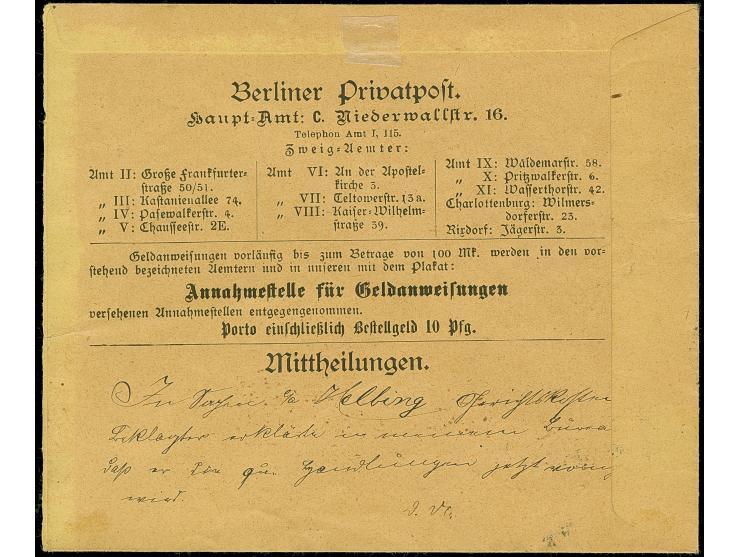 Berliner Privatpost.
Haupt-Amt: C. Niederwallstr. 16.
Telephon Amt I, 115.
Zweig-Aemter:
Amt II: Große Frankfurter-
straße 50/51.
„ III: Kastanienallee 74.
„ IV: Pasewalkerstr. 4.
„ V: Chausseestr. 2E.
Amt VI: An der Apostel-
kirche 3.
„ VII: Teltowerstr. 13a.
„ VIII: Kaiser-Wilhelm-
straße 39.
Amt IX: Waldemarstr. 58.
„ X: Pritzwalkerstr. 6.
„ XI: Wasserthorstr. 42.
Charlottenburg: Wilmers-
dorferstr. 23.
Rixdorf: Jägerstr. 3.
Geldanweisungen vorläufig bis zum Betrage von 100 Mk. werden in den vor-
stehend bezeichneten Aemtern und in unseren mit dem Plakat:
Annahmestelle für Geldanweisungen
versehenen Annahmestellen entgegengenommen.
Porto einschließlich Bestellgeld 10 Pfg.
Mittheilungen.
In Sachen Helbing Gerichtskosten
Beklagter erklärte in meinem
daß er die qu. Handlungen jetzt
wird.